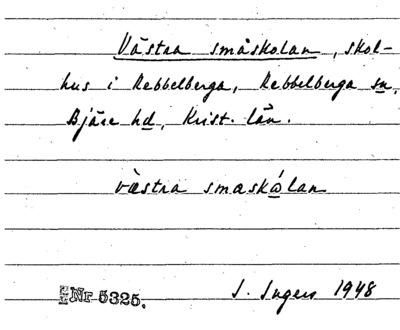 Västra småskolan, skol-
hus i Rebbelberga, Rebbelberga sn,
Bjäre hd, Krist. län.
västra smaskǻlan
Nr 5325.
I. Ingers 1948